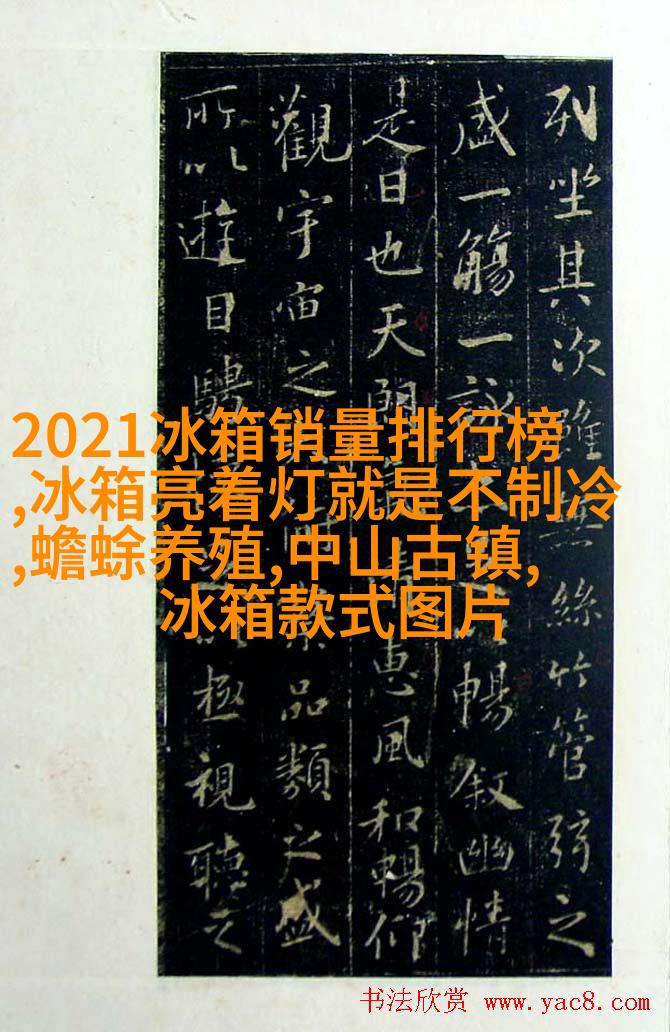 列坐其次雖無絲竹管弦之
盛一觴一詠暢叙幽情
是日也天朗惠風和暢仰
觀宇宙之品類之盛
所以遊目騁極視聽之
2021冰箱销量排行榜
,冰箱亮着灯就是不制冷
,蟾蜍养殖,中山古镇,
冰箱款式图片
书法欣赏 www.yac8.com